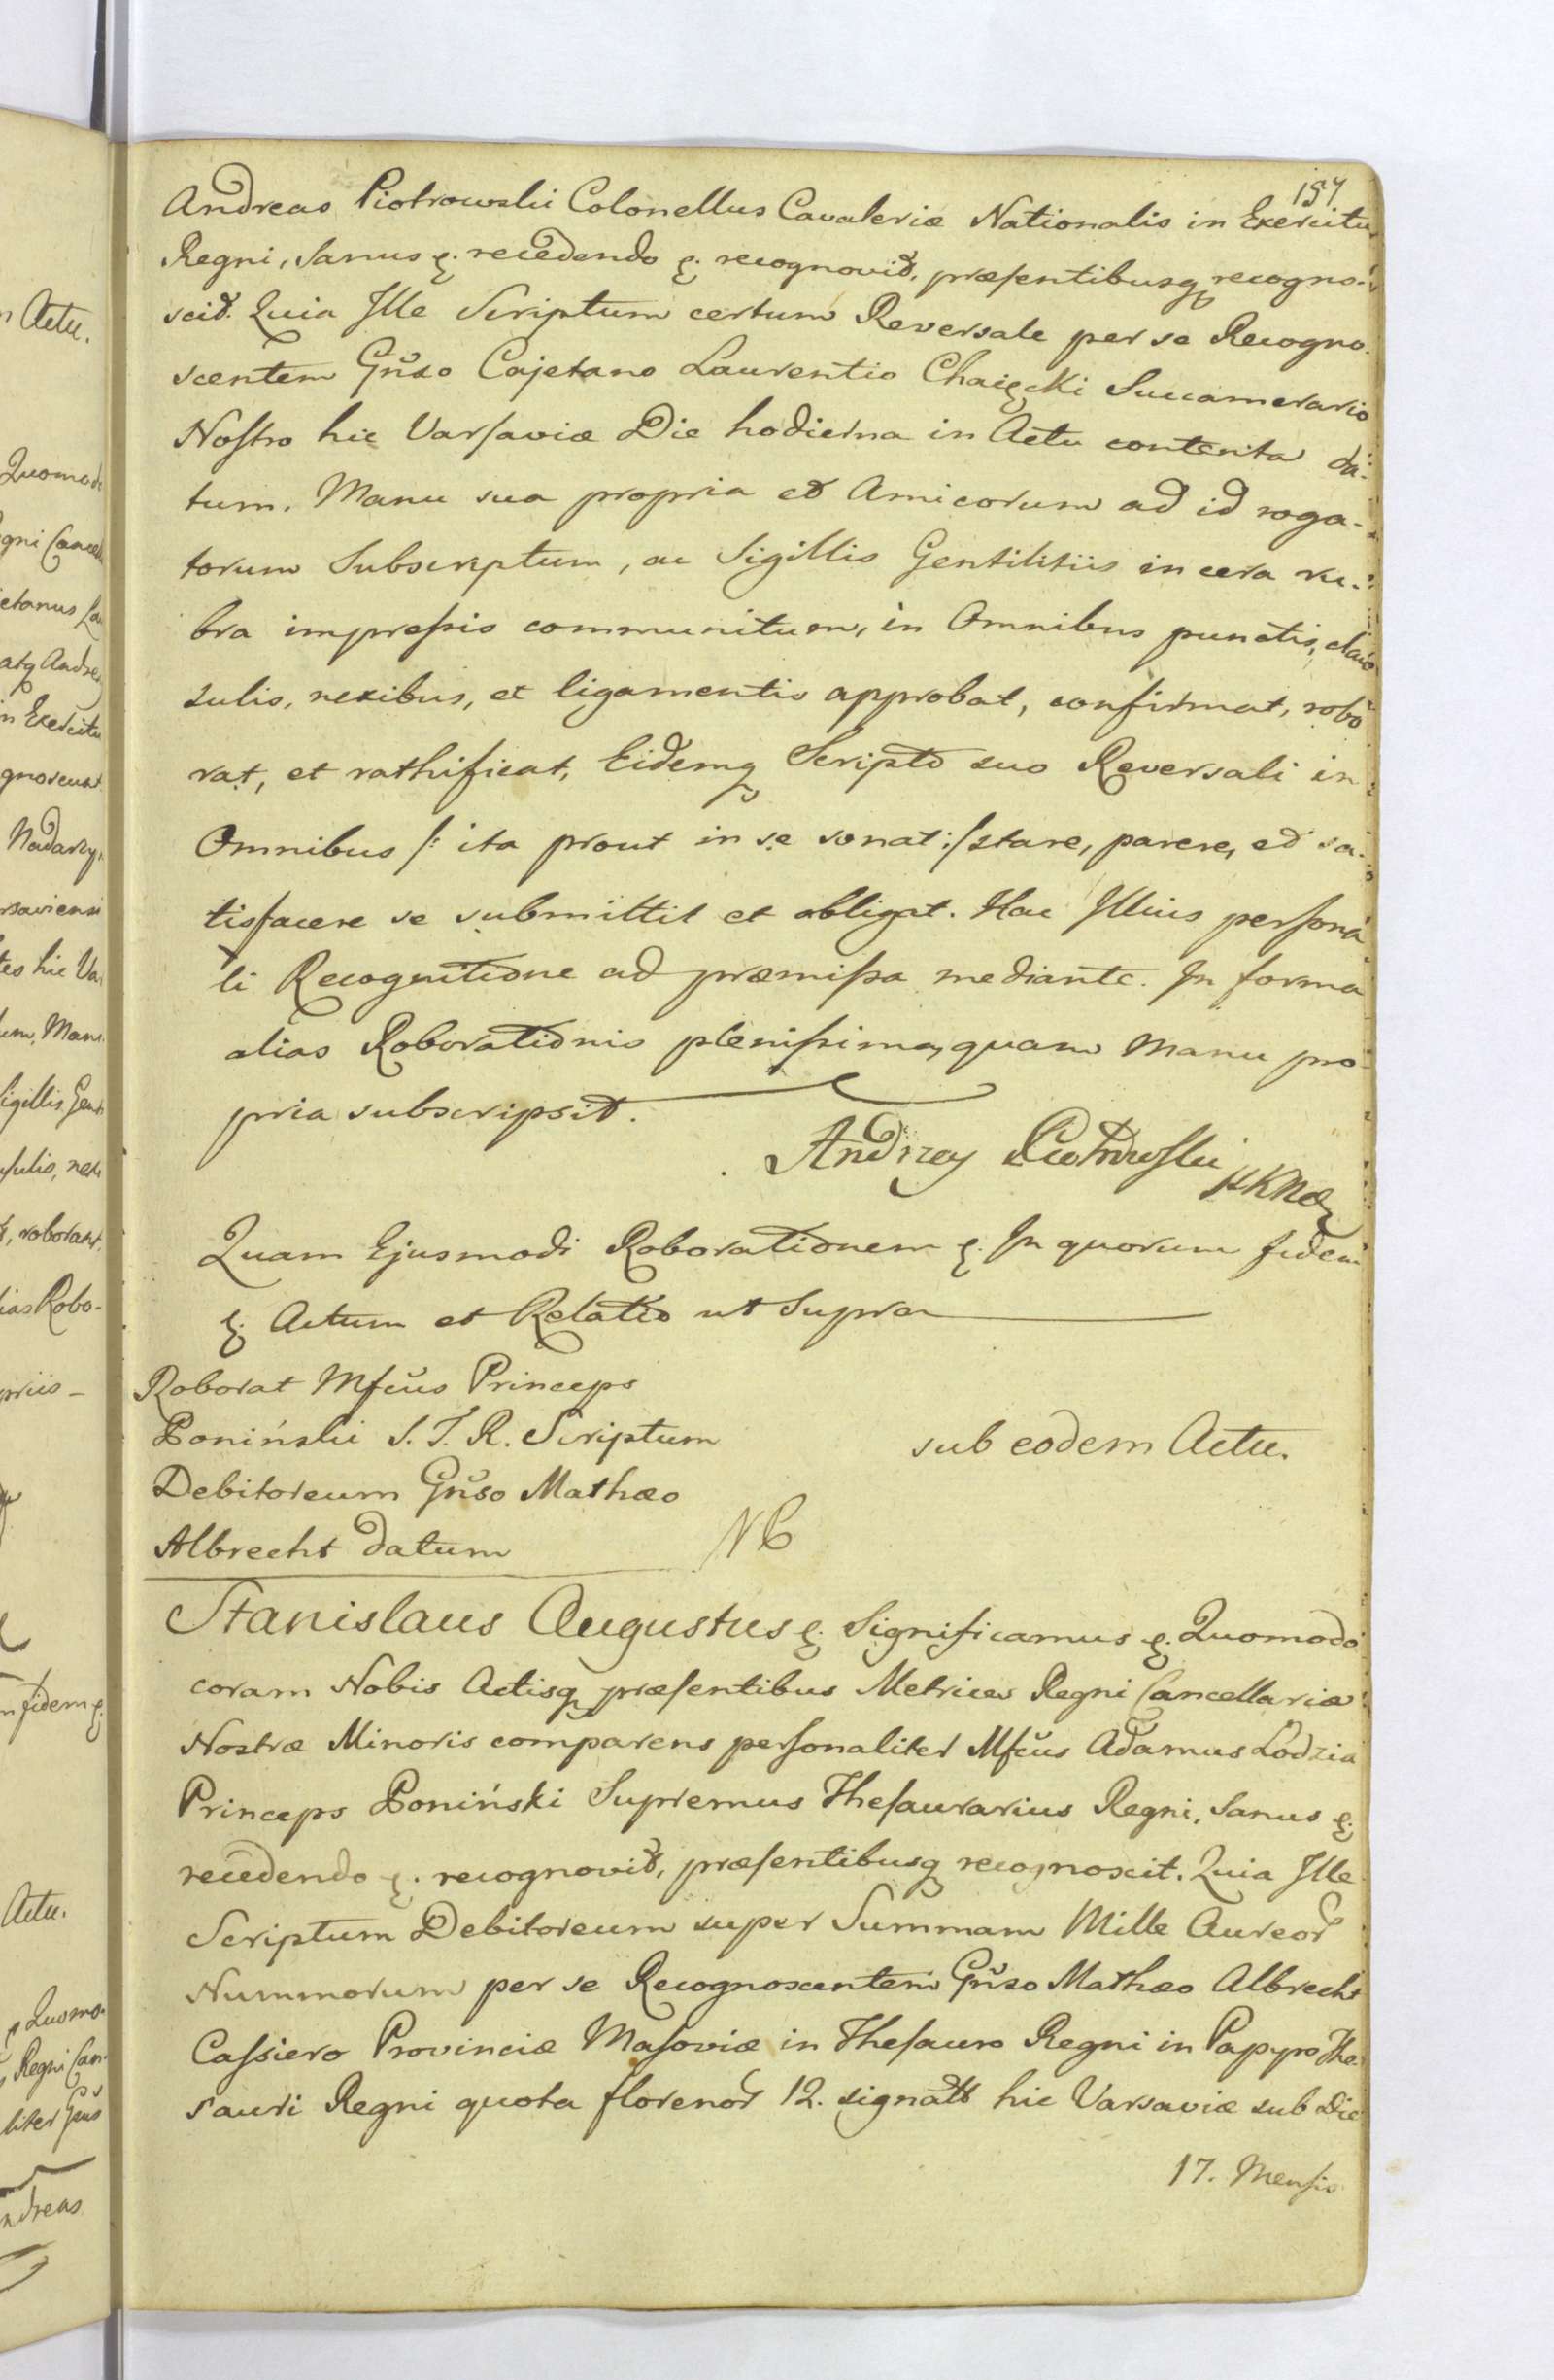 157
Andreas Piotrowski Colonellus Cavaleriæ Nationalis in Exercitu
Regni, Sanus &. recedendo &. recognovit, præsentibusq recogno-
scit. Quia Ille Scriptum certum Reversale per se Recogno-
scentem Gnŭso Cajetano Laurentio Chaięcki Succamerario
Nostro hic Varsaviæ Die hodierna in Actu contenta da-
tum. Manu sua propria et Amicorum ad id roga-
torum Subscriptum, ac Sigillis Gentilitiis in cera ru-
bra impressis communitum, in Omnibus punctis, clau
sulis, nexibus, et ligamentis approbat, confirmat, robo
rat, et rathificat, Eidemq Scripto suo Reversali in
Omnibus /: ita prout in se sonat :/ stare, parere, et sa-
tisfacere se submittit et obligat. Hac Illius persona
li Recognitione ad præmissa mediante. In forma
alias Roborationis plenissima, quam Manu pro
pria subscripsit.
Andrzey Piotrowski
Quam Ejusmodi Roborationem &. In quorum fidem
&. Actum et Relatio ut Supra
Roborat Mfcŭs Princeps
Poniński S. T. R. Scriptum
Debitoreum Gnŭso Mathæo
Albrecht datum
sub eodem Actu.
Stanislaus Augustus &. Significamus &. Quomodo
coram Nobis Actisq præsentibus Metrices Regni Cancellariæ
Nostræ Minoris comparens personaliter Mfcŭs Adamus Łodzia
Princeps Poniński Supremus Thesaurarius Regni, Sanus &.
recedendo &. recognovit, præsentibusq recognoscit. Quia Ille
Scriptum Debitoreum super Summam Mille Aureor
Nummorum per se Recognoscentem Gnŭso Mathæo Albrecht
Cassiero Provinciæ Masoviæ in Thesauro Regni in Papyro The-
sauri Regni quota florenor 12. signatt hic Varsaviæ sub Die
17. Mensis